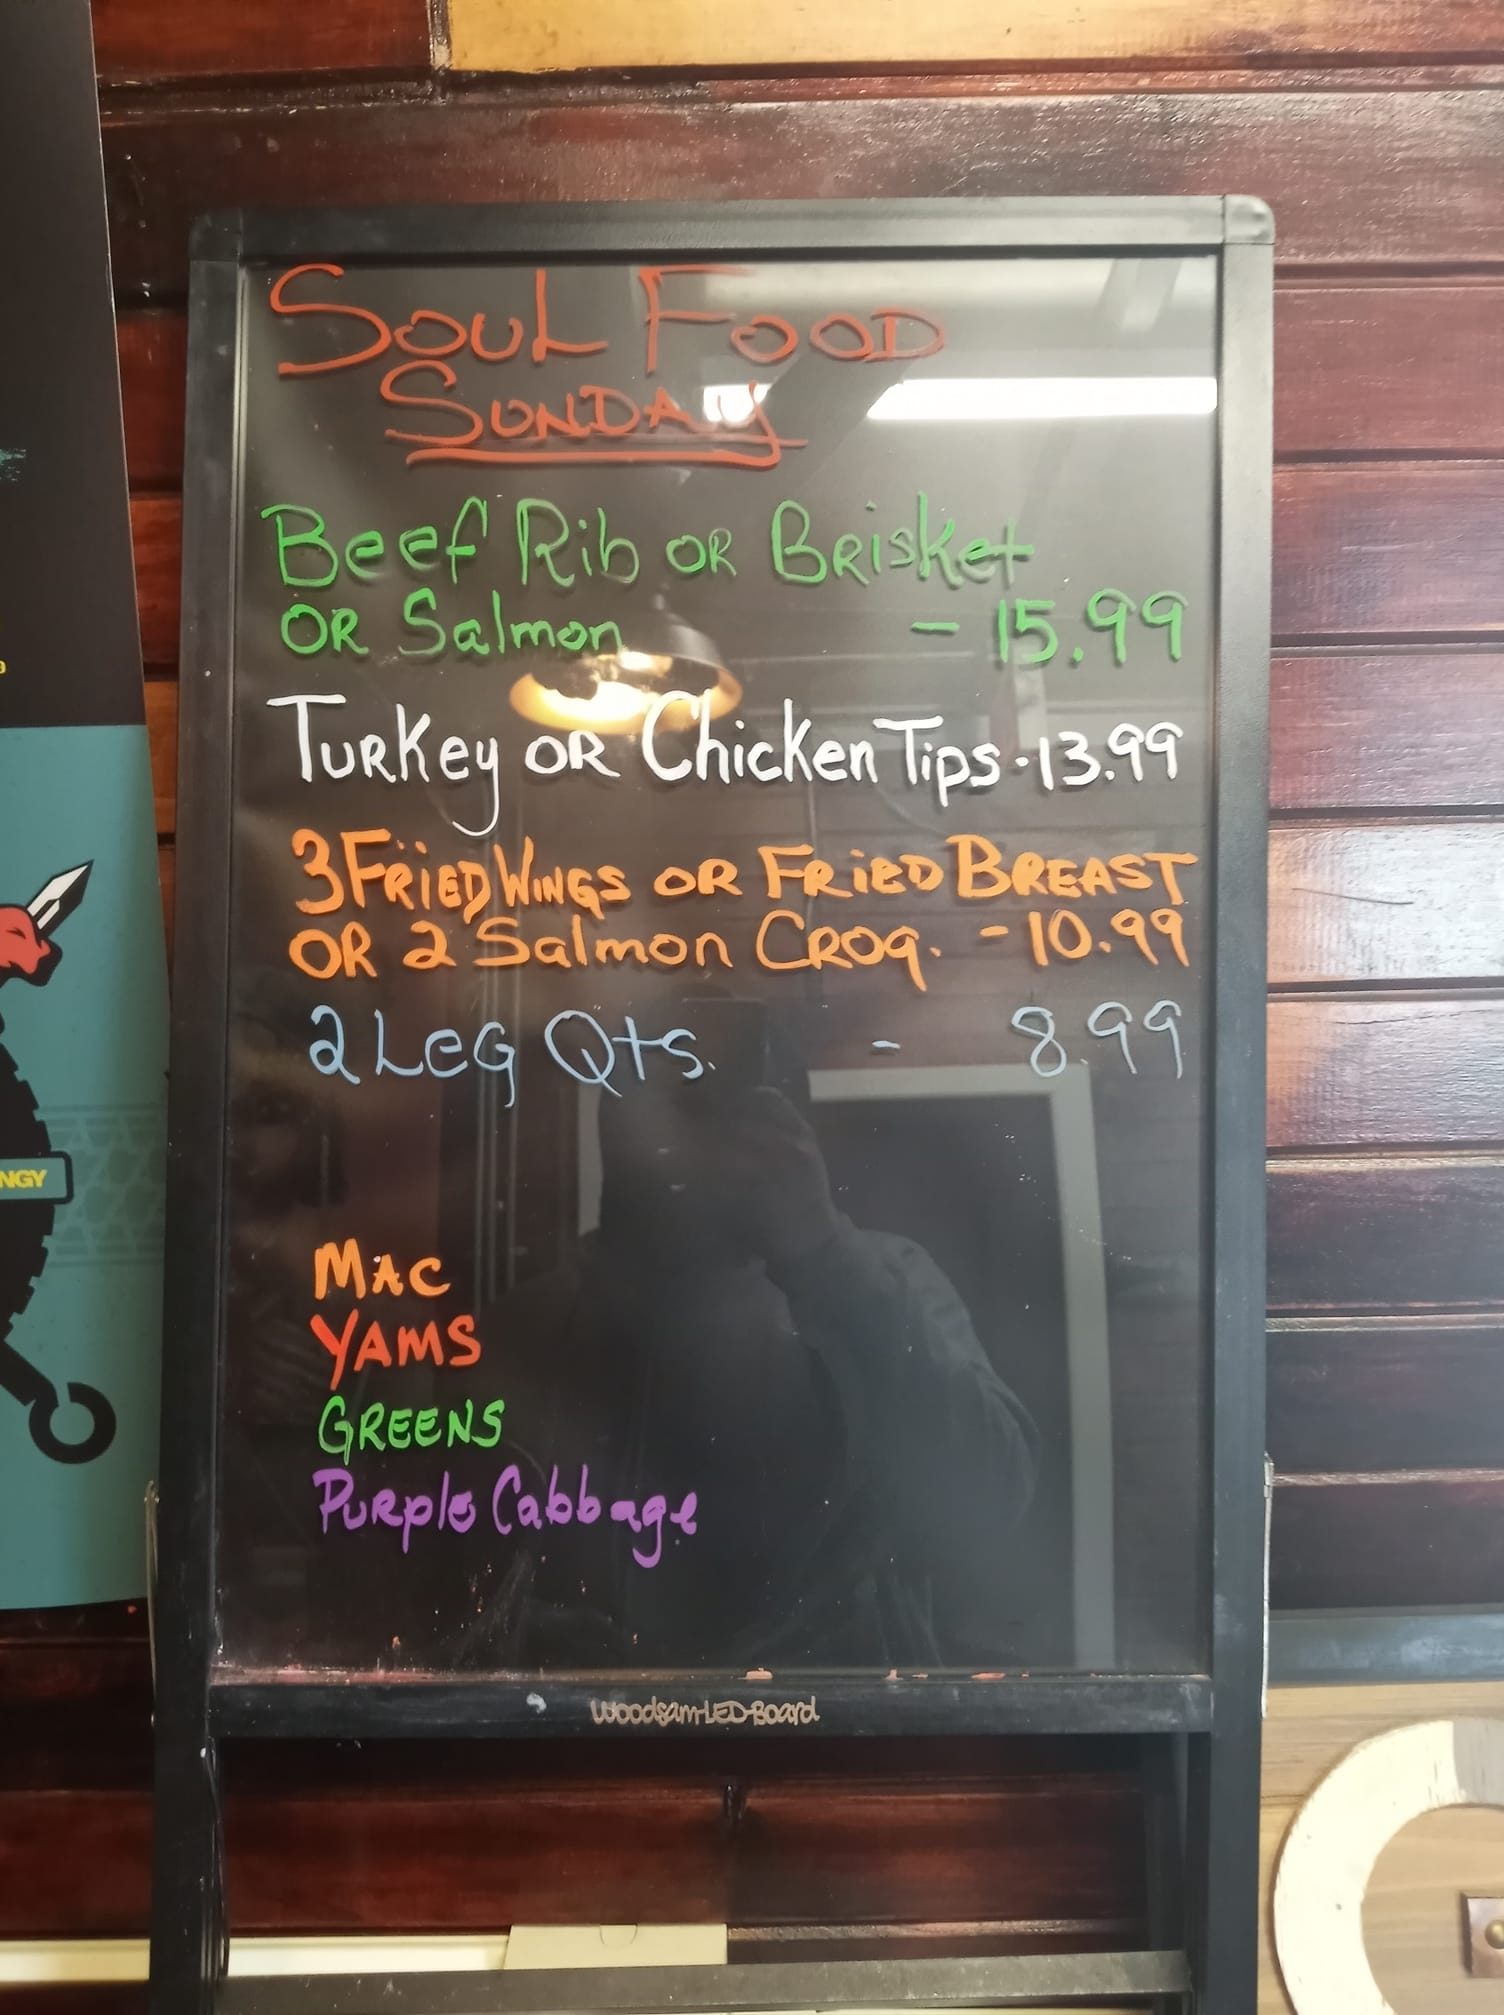 SOUL FOOD
SUNDAY
Beef Rib OR BRisket
OR Salmon - 15.99
TURKey OR Chicken Tips - 13.99
3 FRiED WiNGS OR FRiED BREAST
OR 2 Salmon CROq. - 10.99
2 LeG Qts. - 8.99
NGY
MAC
YAMS
GREENS
PURple Cabbage
Woodsam-LED-Board